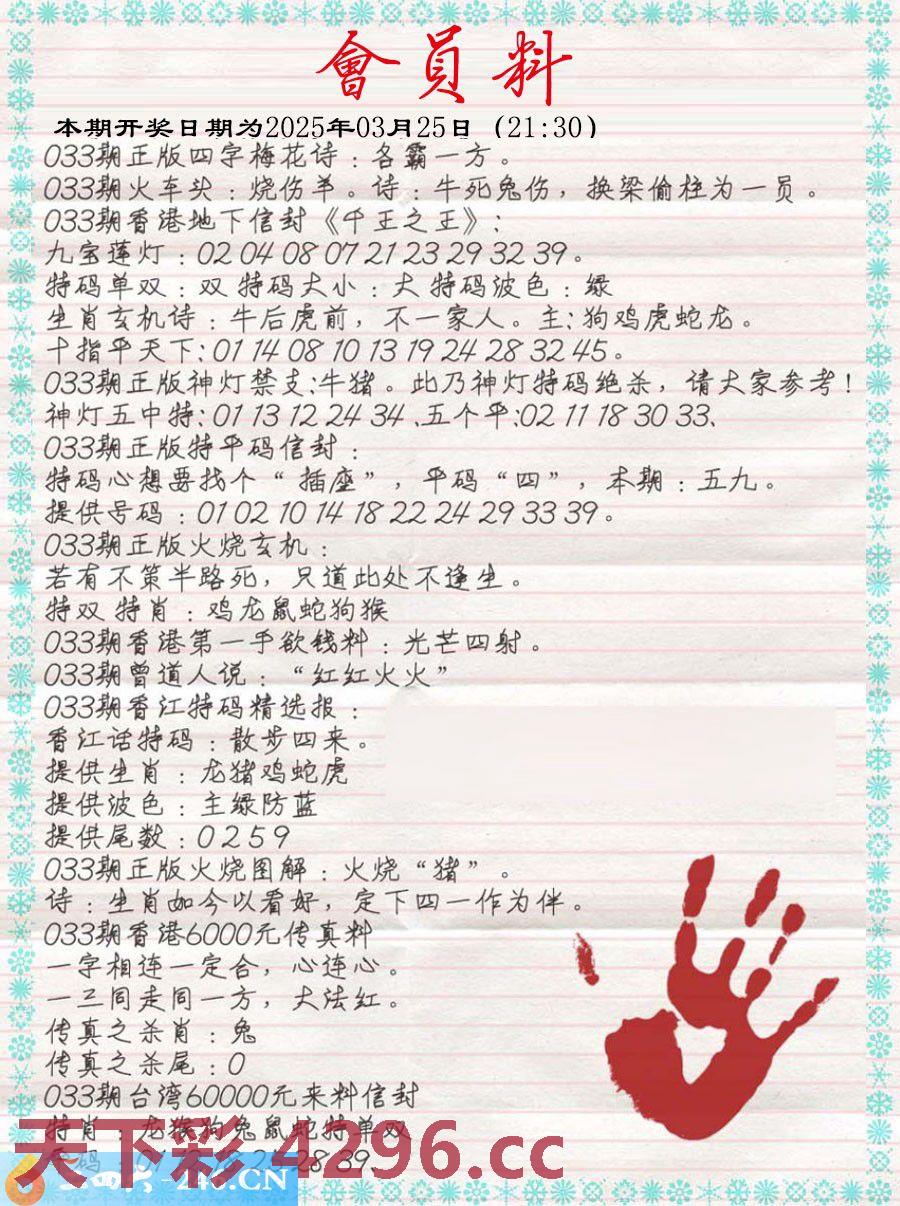 會員料
本期开奖日期为2025年03月25日（21:30）
033期正版四字梅花诗：各霸一方。
033期火车头：烧伤羊。诗：牛死兔伤，换梁偷柱为一员。
033期香港地下信封《千王之王》：
九宝莲灯：02 04 08 07 21 23 29 32 39。
特码单双：双 特码大小：大 特码波色：绿
生肖玄机诗：牛后虎前，不一家人。主：狗鸡虎蛇龙。
十指平天下：01 14 08 10 13 19 24 28 32 45。
033期正版神灯禁支：牛猪。此乃神灯特码绝杀，请大家参考！
神灯五中特：01 13 12 24 34、五个平：02 11 18 30 33、
033期正版特平码信封：
特码心想要找个“插座”，平码“四”，本期：五九。
提供号码：01 02 10 14 18 22 24 29 33 39。
033期正版火烧玄机：
若有不策半路死，只道此处不逢生。
特双 特肖：鸡龙鼠蛇狗猴
033期香港第一手欲钱料：光芒四射。
033期曾道人说：“红红火火”
033期香江特码精选报：
香江话特码：散步四来。
提供生肖：龙猪鸡蛇虎
提供波色：主绿防蓝
提供尾数：0 2 5 9
033期正版火烧图解：火烧“猪”。
诗：生肖如今以看好，定下四一作为伴。
033期香港6000元传真料
一字相连一定合，心连心。
一三同走同一方，大法红。
传真之杀肖：兔
传真之杀尾：0
033期台湾60000元来料信封
特肖：龙猴狗兔鼠蛇特单双
天下彩 4296.cc
28 39、
-246.CN